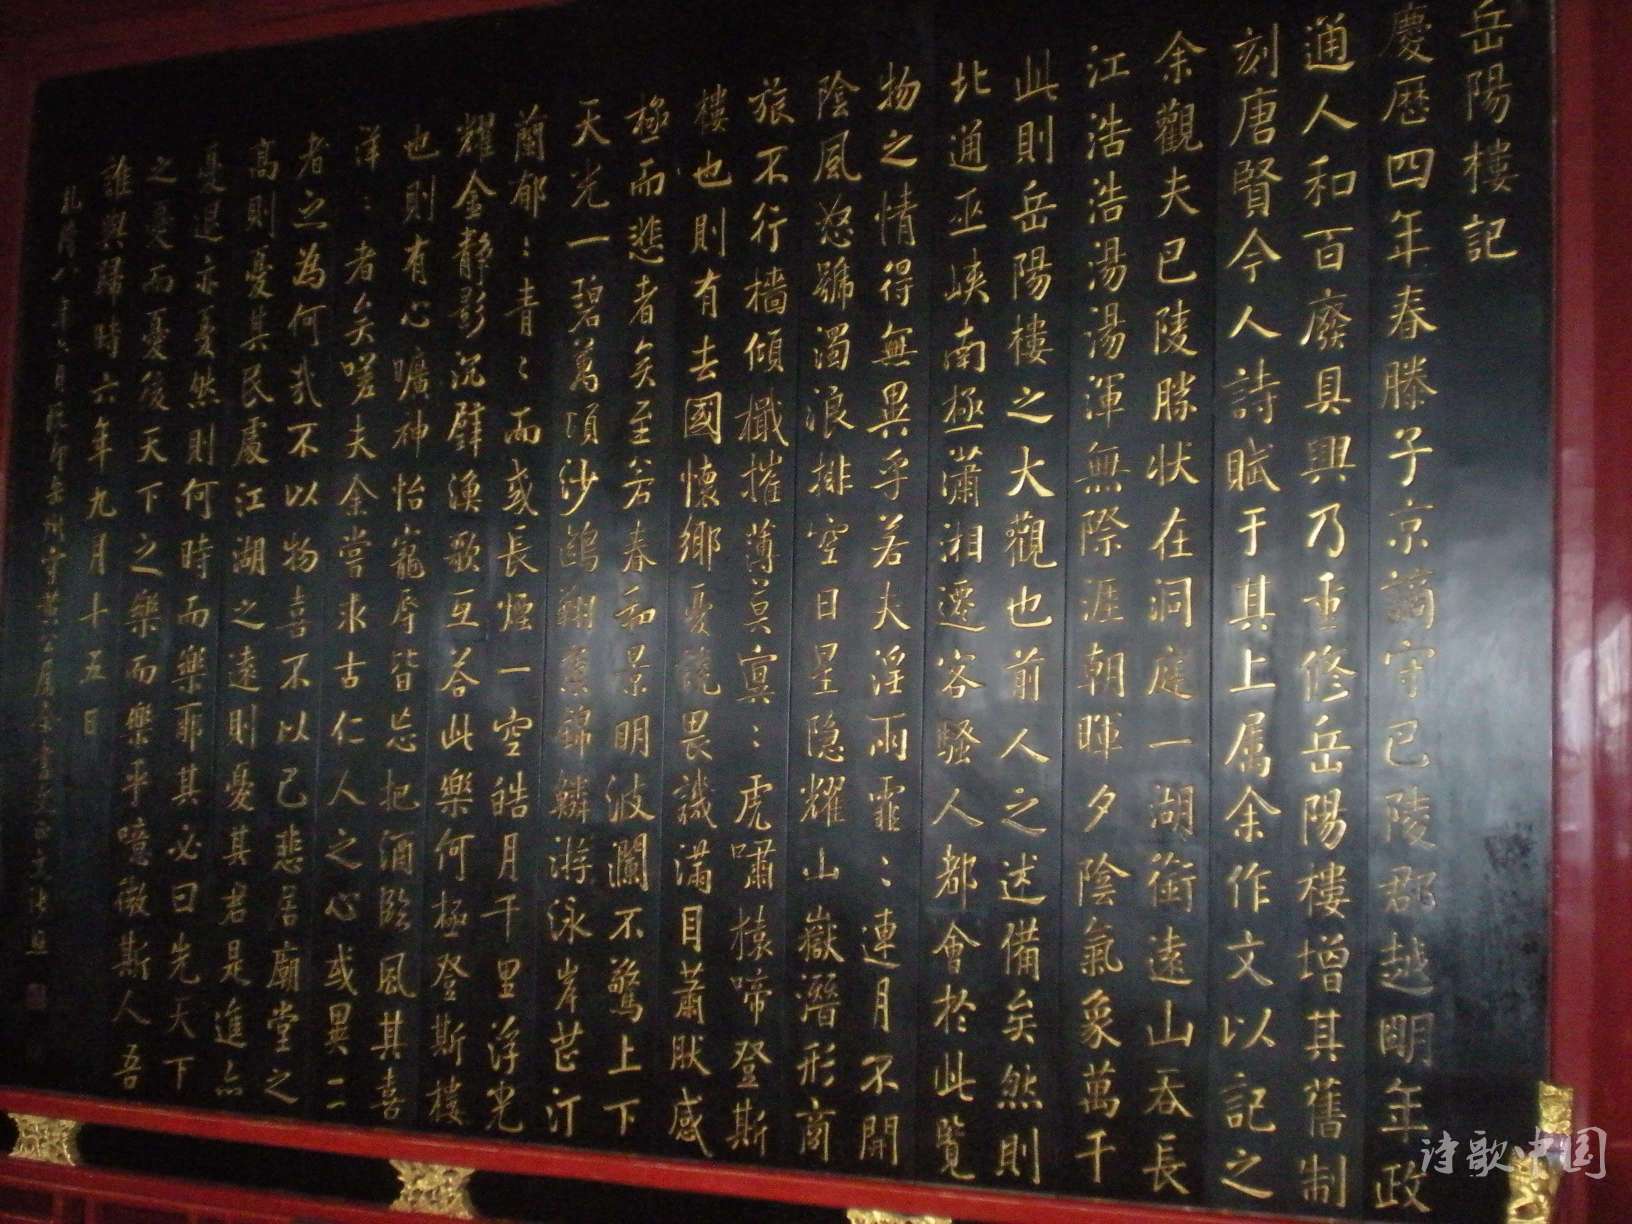 岳陽樓記
慶歷四年春滕子京謫守巴陵郡越明年政
通人和百廢具興乃重修岳陽樓增其舊制
刻唐賢今人詩賦于其上属余作文以記之
余觀夫巴陵勝狀在洞庭一湖銜遠山吞長
江浩浩湯湯渾無際涯朝暉夕陰氣象萬千
此則岳陽樓之大觀也前人之述備矣然則
北通巫峽南極瀟湘遷客騷人都會於此覽
物之情得無異乎若夫淫雨霏〻連月不開
陰風怒號濁浪排空日星隐耀山嶽潛形商
旅不行檣傾檝摧薄莫冥〻虎嘯猿啼登斯
樓也則有去國懷鄉憂讒畏譏滿目蕭肰感
極而悲者矣至若春和景明波瀾不驚上下
天光一碧萬頃沙鷗翔集錦鱗游泳岸芷汀
蘭郁〻青〻而或長煙一空皓月千里浮光
耀金靜影沉璧漁歌互答此樂何極登斯樓
也則有心曠神怡寵辱皆忘把酒臨風其喜
洋〻者矣嗟夫余嘗求古仁人之心或異二
者之為何哉不以物喜不以己悲居廟堂之
高則憂其民處江湖之遠則憂其君是進亦
憂退亦憂然則何時而樂耶其必曰先天下
之憂而憂後天下之樂而樂乎噫微斯人吾
誰與歸時六年九月十五日
乾隆八年六月
诗歌中国